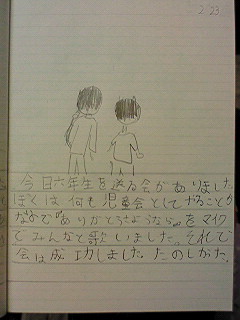 2/23
今日六年生を送る会がありました。
ぼくは何も児童会としてやることが
なので『ありがとうさようなら』をマイク
でみんなと歌いました。それで
会は成功しました。たのしかた。